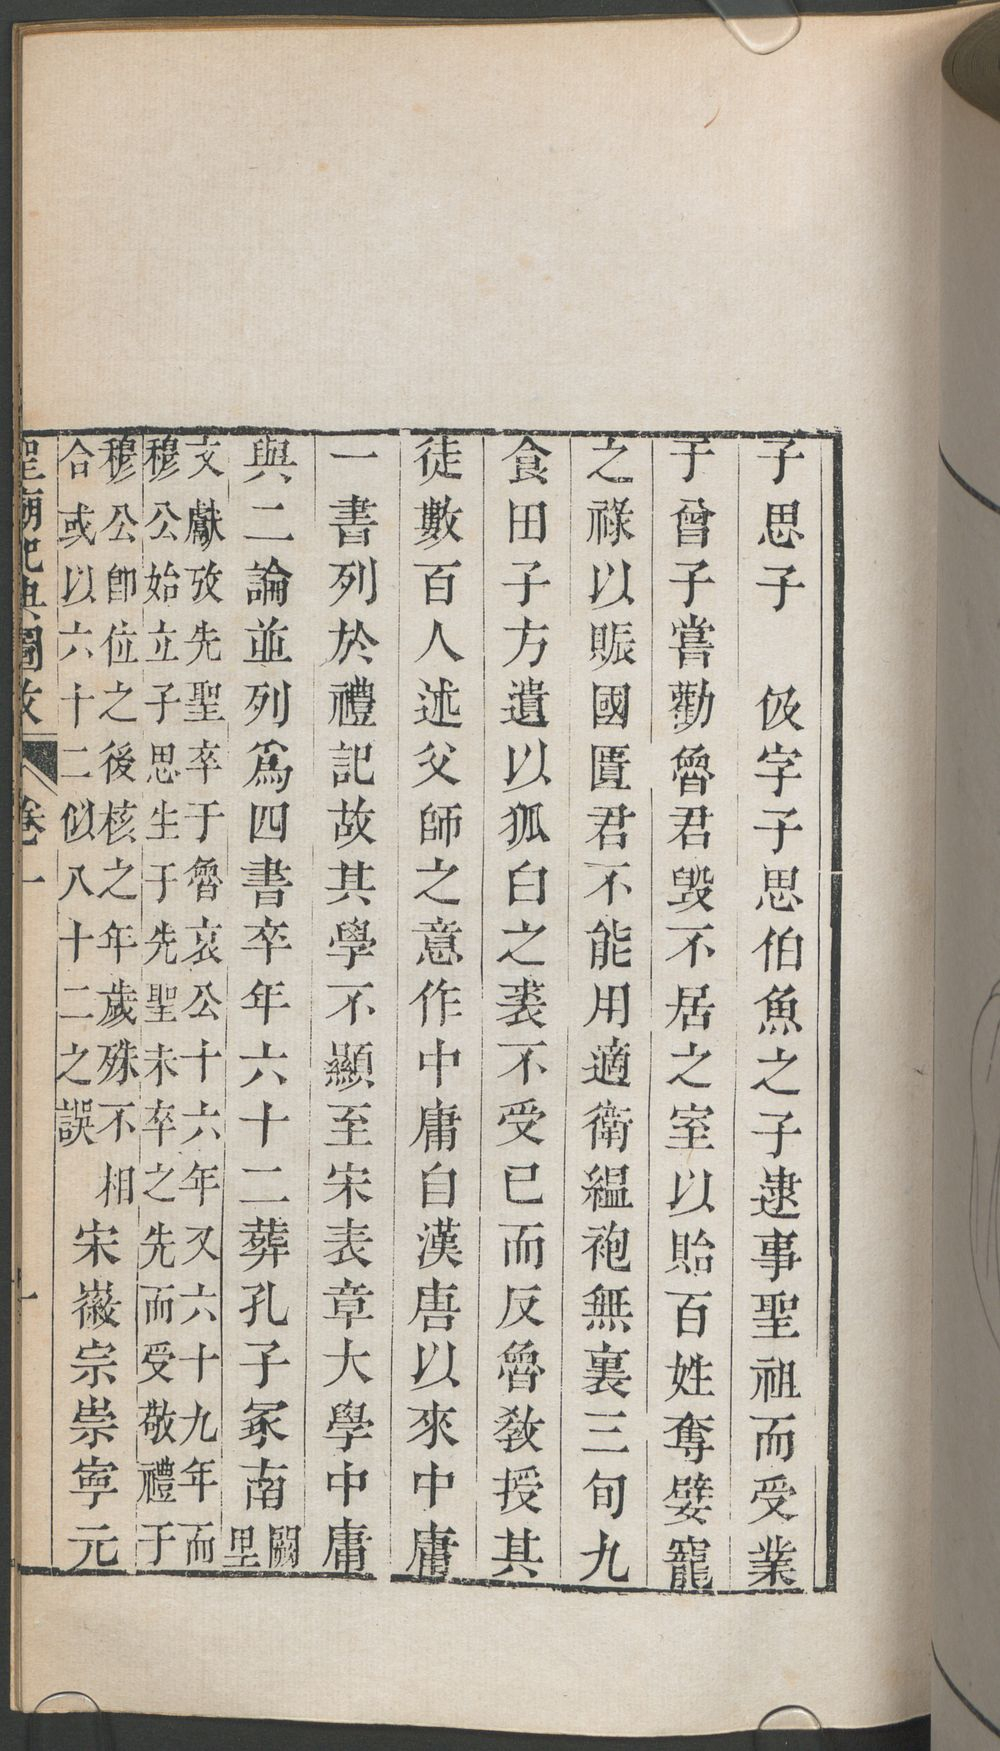 子思子　伋字子思伯魚之子逮事聖祖而受業
于曾子嘗勸魯君毀不居之室以貽百姓奪嬖寵
之祿以賑國匱君不能用適衛縕袍無裏三旬九
食田子方遺以狐白之裘不受已而反魯教授其
徒數百人述父師之意作中庸自漢唐以來中庸
一書列於禮記故其學不顯至宋表章大學中庸
與二論並列爲四書卒年六十二葬孔子冢南闕里
文獻攷先聖卒于魯哀公十六年又六十九年而
穆公始立子思生于先聖未卒之先而受敬禮于
穆公卽位之後核之年歲殊不相
合或以六十二似八十二之誤
宋徽宗崇寧元
聖廟祀典圖攷　卷一　一